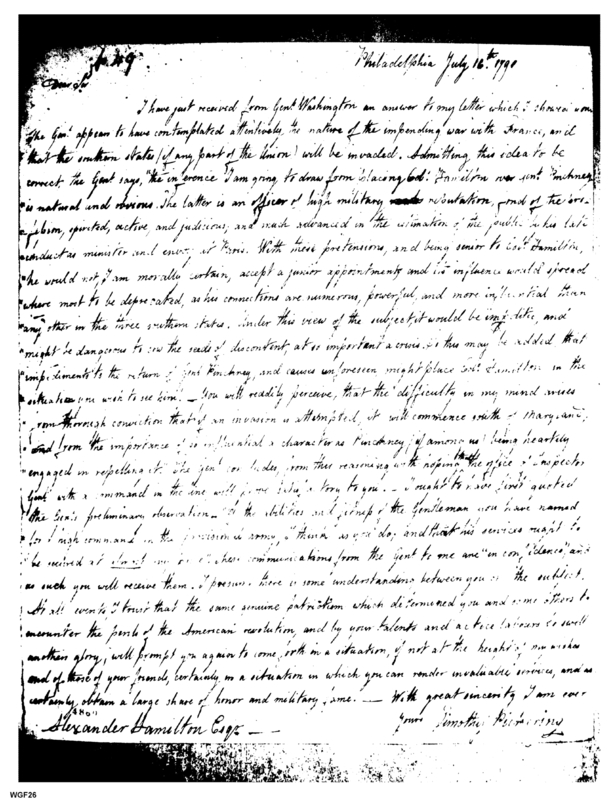 No. 49.
Philadelphia July 16th. 1798
Dear Sir
I have just received from Genl. Washington an answer to my letter which I shewed you.
The Genl. appears to have contemplated attentively, the nature of the impending war with France, and
that the southern states (if any part of the Union) will be invaded. Admitting this idea to be
correct, the Genl. says, "the inference I am going to draw from placing Colo. Hamilton over Genl. Pinckney
"is natural and obvious. The latter is an officer of high military reputation, fond of the
profession, spirited, active, and judicious; and much advanced in the estimation of the public by his late
conduct as minister and envoy at Paris. With these pretensions, and being senior to Colo. Hamilton,
"he would not, I am morally certain, accept a junior appointment; and his influence would spread
"where most to be deprecated, as his connections are numerous, powerful, and more influential than
"any other in the three southern states. Under this view of the subject it would be impolitic, and
"might be dangerous to sow the seeds of discontent, at so important a crisis. To this may be added that
"impediments to the return of Genl. Pinckney, and causes unforeseen might place Colo. Hamilton in the
"situation you wish to see him. — You will readily perceive, that the difficulty in my mind arises
"from thorough conviction that if an invasion is attempted, it will commence south of Maryland;
"and from the importance of so influential a character as Pinckney (if among us) being heartily
engaged in repelling it. The Genl. concludes from this reasoning with hoping the office of Inspector
Genl. with a command in the line will be satisfactory to you. — I ought to have first quoted
the Gen's preliminary observation— "Of the abilities and fitness of the Gentleman you have named
for a high command in the provisional army, I think as you do; and that his services ought to
be secured at almost any price." These communications from the Genl. to me are "in confidence," and
as such you will receive them. I presume there is some understanding between you on the subject.
At all events I trust that the same genuine patriotism which determined you and some others to
encounter the perils of the American revolution, and by your talents and active labours to swell
another's glory, will prompt you again to come forth in a situation, if not at the height of my wishes
and of those of your friends, certainly in a situation in which you can render invaluable services, and as
certainly, obtain a large share of honor and military fame. — With great sincerity I am ever
yours Timothy Pickering
Alexander Hamilton Esqr. —
WGF26